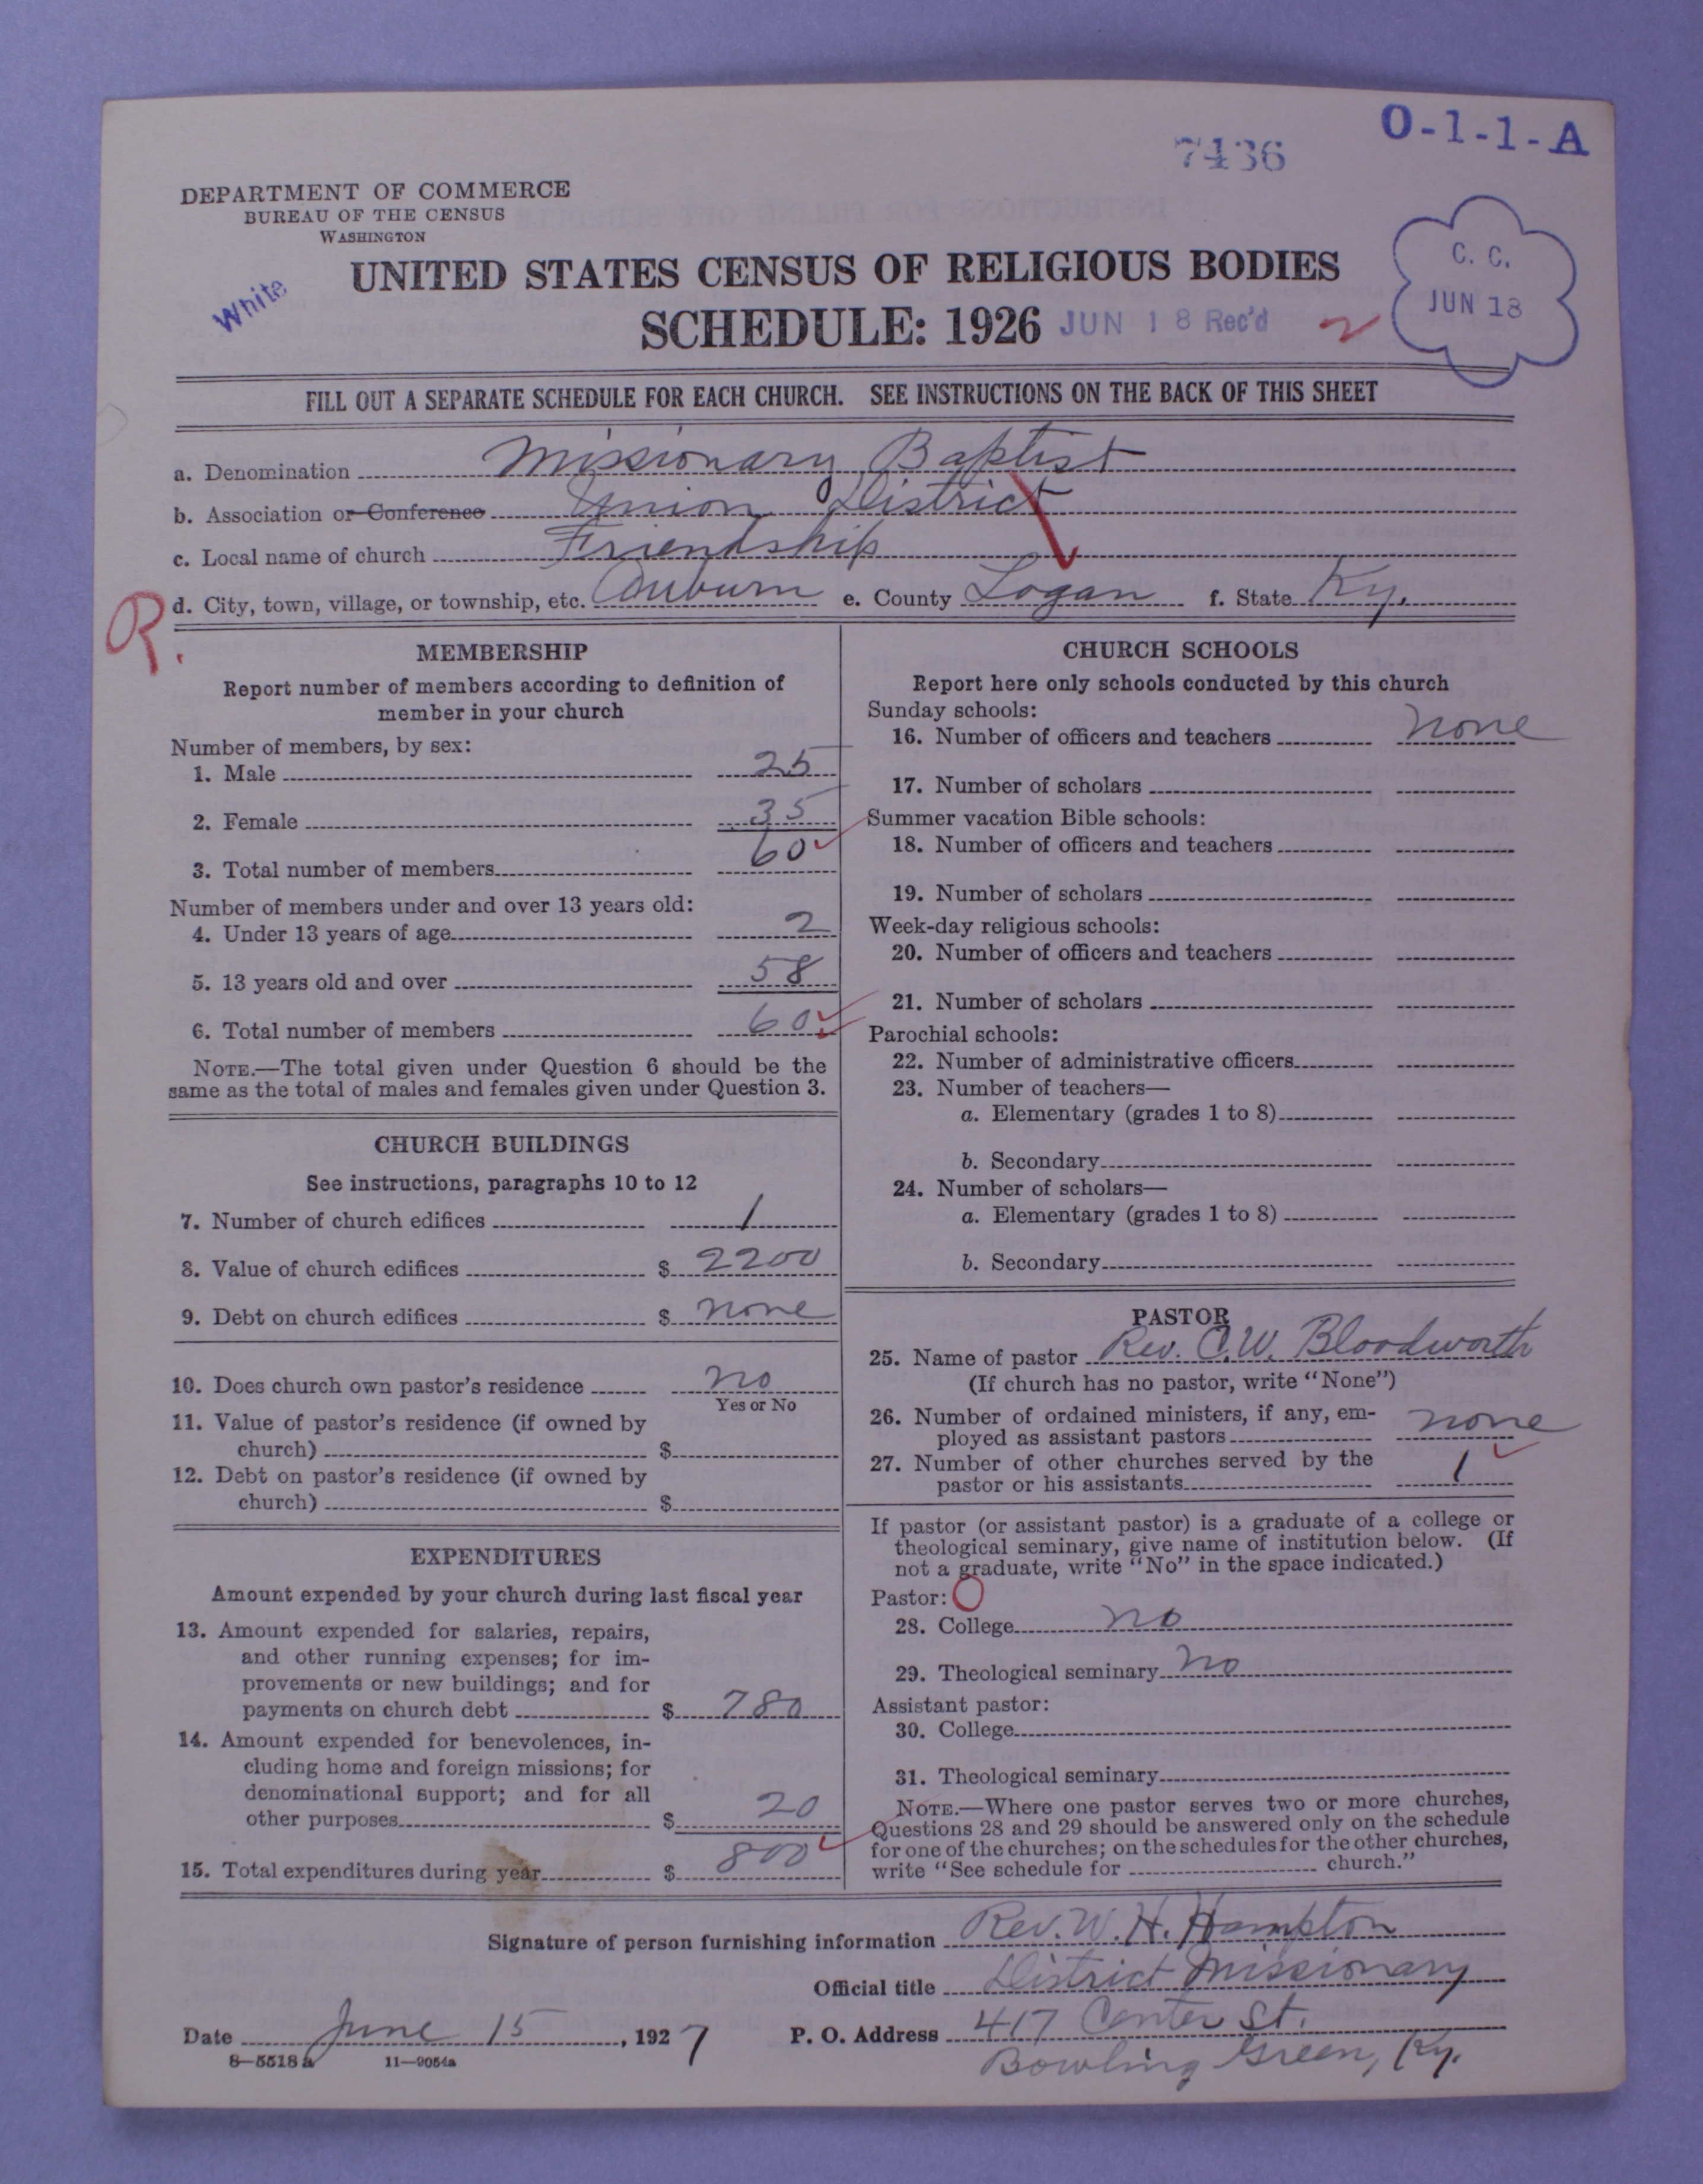 O-1-1-A
7436
DEPARTMENT OF COMMERCE
BUREAU OF THE CENSUS
WASHINGTON
White
UNITED STATES CENSUS OF RELIGIOUS BODIES
SCHEDULE: 1926
JUN 18 Rec'd
2
C. C.
JUN 18
FILL OUT A SEPARATE SCHEDULE FOR EACH CHURCH. SEE INSTRUCTIONS ON THE BACK OF THIS SHEET
a. Denomination Missionary Baptist
b. Association or Conference Union District
c. Local name of church Friendship
R.
d. City, town, village, or township, etc. Auburn e. County Logan f. State Ky.
MEMBERSHIP
Report number of members according to definition of
member in your church
Number of members, by sex:
1. Male 25
2. Female 35
3. Total number of members 60
Number of members under and over 13 years old:
4. Under 13 years of age 2
5. 13 years old and over 58
6. Total number of members 60
NOTE.—The total given under Question 6 should be the
same as the total of males and females given under Question 3.
CHURCH BUILDINGS
See instructions, paragraphs 10 to 12
7. Number of church edifices 1
8. Value of church edifices $ 2200
9. Debt on church edifices $ none
10. Does church own pastor's residence no
Yes or No
11. Value of pastor's residence (if owned by
church) $
12. Debt on pastor's residence (if owned by
church) $
EXPENDITURES
Amount expended by your church during last fiscal year
13. Amount expended for salaries, repairs,
and other running expenses; for im-
provements or new buildings; and for
payments on church debt $ 780
14. Amount expended for benevolences, in-
cluding home and foreign missions; for
denominational support; and for all
other purposes $ 20
15. Total expenditures during year $ 800
CHURCH SCHOOLS
Report here only schools conducted by this church
Sunday schools:
16. Number of officers and teachers none
17. Number of scholars
Summer vacation Bible schools:
18. Number of officers and teachers
19. Number of scholars
Week-day religious schools:
20. Number of officers and teachers
21. Number of scholars
Parochial schools:
22. Number of administrative officers
23. Number of teachers—
a. Elementary (grades 1 to 8)
b. Secondary
24. Number of scholars—
a. Elementary (grades 1 to 8)
b. Secondary
PASTOR
25. Name of pastor Rev. C. W. Bloodworth
(If church has no pastor, write "None")
26. Number of ordained ministers, if any, em-
ployed as assistant pastors none
27. Number of other churches served by the
pastor or his assistants 1
If pastor (or assistant pastor) is a graduate of a college or
theological seminary, give name of institution below. (If
not a graduate, write "No" in the space indicated.)
Pastor: O
28. College no
29. Theological seminary no
Assistant pastor:
30. College
31. Theological seminary
NOTE.—Where one pastor serves two or more churches,
Questions 28 and 29 should be answered only on the schedule
for one of the churches; on the schedules for the other churches,
write "See schedule for church."
Signature of person furnishing information Rev. W. H. Hampton
Official title District Missionary
Date June 15, 1927 P. O. Address 417 Center St.
Bowling Green, Ky.
8—5518 a 11—9054a